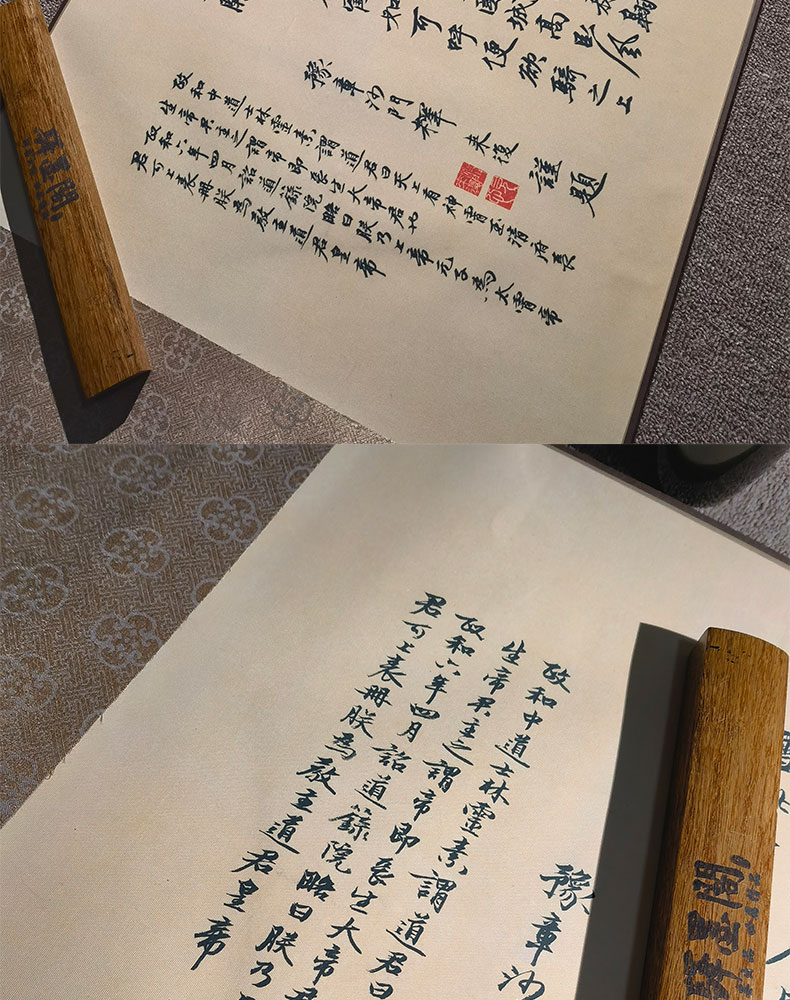 城高
如可呼便欲騎之上
豫章沙門釋來復謹題
政和中道士林靈素謂道君曰天上有神霄玉清府長
生帝君主之謂帝即長生大帝君也
政和六年四月詔道籙院略曰朕乃上帝元子為太霄帝
君可上表冊朕為教主道君皇帝
墨閣
豫章沙
政和中道士林靈素謂道君曰
生帝君主之謂帝即長生大帝君
政和六年四月詔道籙院略曰朕乃
君可上表冊朕為教主道君皇帝
墨閣